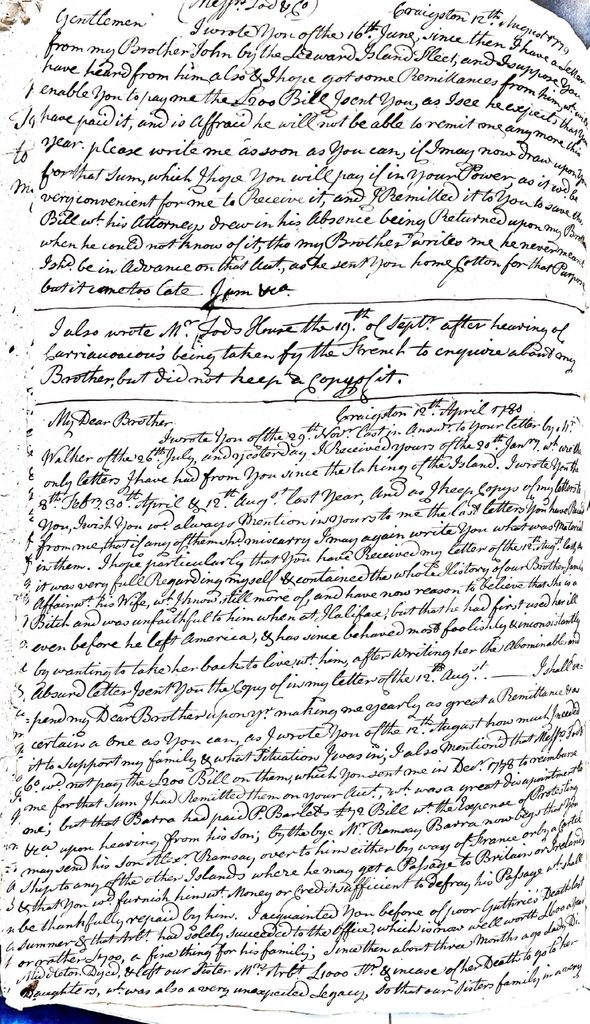 (Messrs. Tod & Co)
Craigston 12th August 1779
Gentlemen
I wrote You of the 16th June, since then I have a Letter
from my Brother John by the Leeward Island Fleet, and I suppose You
have heard from him also & I hope got some Remittances from him, wt.
enable You to pay me the £200 Bill I sent You, as I see he expects that You
have paid it, and is Affraid he will not be able to remit me any more this
year. please write me as soon as You can, if I may now draw upon You
for that Sum, which I hope You will pay if in Your Power, as it wd. be
very convenient for me to Receive it, and I Remitted it to You to save the
Bill wt. his Attorneys drew in his Absence being Returned upon my Brother
when he could not know of it, tho my Brother writes me he never meant
I shd. be in Advance on that Acct., as he sent You home Cotton for that Purpose
but it came too late. I am &ca.
I also wrote Mr. Tods House the 19th. of Septr. after hearing of
Carriauacious being taken by the French to enquire about my
Brother, but did not keep a Copy of it.
Craigston 12th April 1780
My Dear Brother
I wrote You of the 29th. Novr. last in Answr. to Your letter by Mr.
Walker of the 26th July, and yesterday I Received Yours of the 20th Janry. wt. are the
only letters I have had from You since the taking of the Island. I wrote You the
8th. Feb. 30th. April & 12th. Augt. last Year, And as I keep Copys of my letters to
You, I wish You wd. always Mention in Yours to me the last letters You have Recd
from me, that if any of them shd. miscarry I may again write You what was Material
in them. I hope particularly that You have Received my letter of the 12th. Augt. last, as
it was very full Regarding myself & contained the whole History of our Brother James's
Affair wt. his Wife, wt. I know still more of, and have now reason to believe that She is a
Bitch and was unfaithful to him when at Halifax; but that he had first used her ill
even before he left America, & has since behaved most foolishly & inconsistantly
by wanting to take her back to live wt. him, after writing her the Abominable and
Absurd letter I sent You the Copy of in my letter of the 12th Augt. — I shall de-
pend my Dear Brother upon yr. making me yearly as great a Remittance & as
certain a one as You can, as I wrote You of the 12th. August how much I needed
it to Support my family & what Situation I was in; I also Mentiond that Messrs Tod &
Co. wd not pay the £200 Bill on them, which You sent me in Decr. 1778 to reimburse
me for that Sum I had Remitted them on Your Acct. wt. was a great disapointment to
me; but that Barra had paid P. Barclets £72 Bill wt. the Expense of Protesting
&ca upon hearing from his Son; by the bye Mr. Ramsay Barra now begs that You
may send his Son Alexr. Ramsay over to him either by way of France or by a Cartel
Ship to any of the other Islands where he may get a Passage to Britain or Ireland
& that You wd. furnish him wt. Money or Credit sufficient to defray his Passage wt. shall
be thankfully repaid by him. I acquainted You before of poor Guthries Death last
summer & that Arbt. had solely succeeded to the Office, which is now well worth £600 a year
or rather £700, a fine thing for his family; Since then about three Months ago Lady Di.
Middleton Dyed, & left our Sister Mrs. Arbt £1000 Str. & incase of her Death to go to her
Daughters, wt. was also a very unexpected Legacy, So that our Sisters family in a very